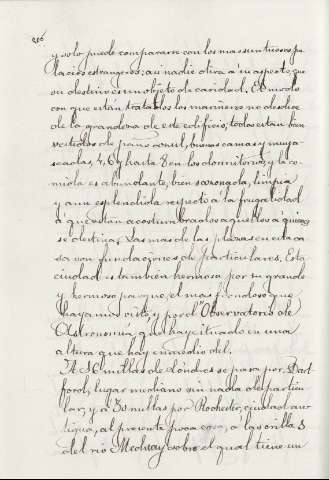 y solo puede compararse con los mas suntuosos pa
lacios estrangeros: asi nadie dira á su aspecto que
su destino es un objeto de caridad. El modo
con que están tratados los marineros no desdice
de la grandeza de este edificio, todos estan bien
vestidos de paño azul, buenas camas y
4, 6 y hasta 8 en los dormitorios, y la co
mida es abundante, bien sazonada, limpia
y aun esplendida respecto á la frugalidad
á que están acostumbrados aquellos a quienes
se destina. Las mas de las plazas en esta ca
sa son fundaciones de particulares. Esta
ciudad es tambien hermosa por su grande
y hermoso parque, el mas frondoso que
hayamos visto, y por el Observatorio de
Astronomia, que hay situado en una
altura que hay en medio del.
A 16 millas de Londres se pasa por Dart
ford, lugar mediano sin nada de particu
lar; y a 30 millas por Rochester, ciudad an
tigua, al presente poca cosa, a las orillas
del rio Medway sobre el qual tiene un